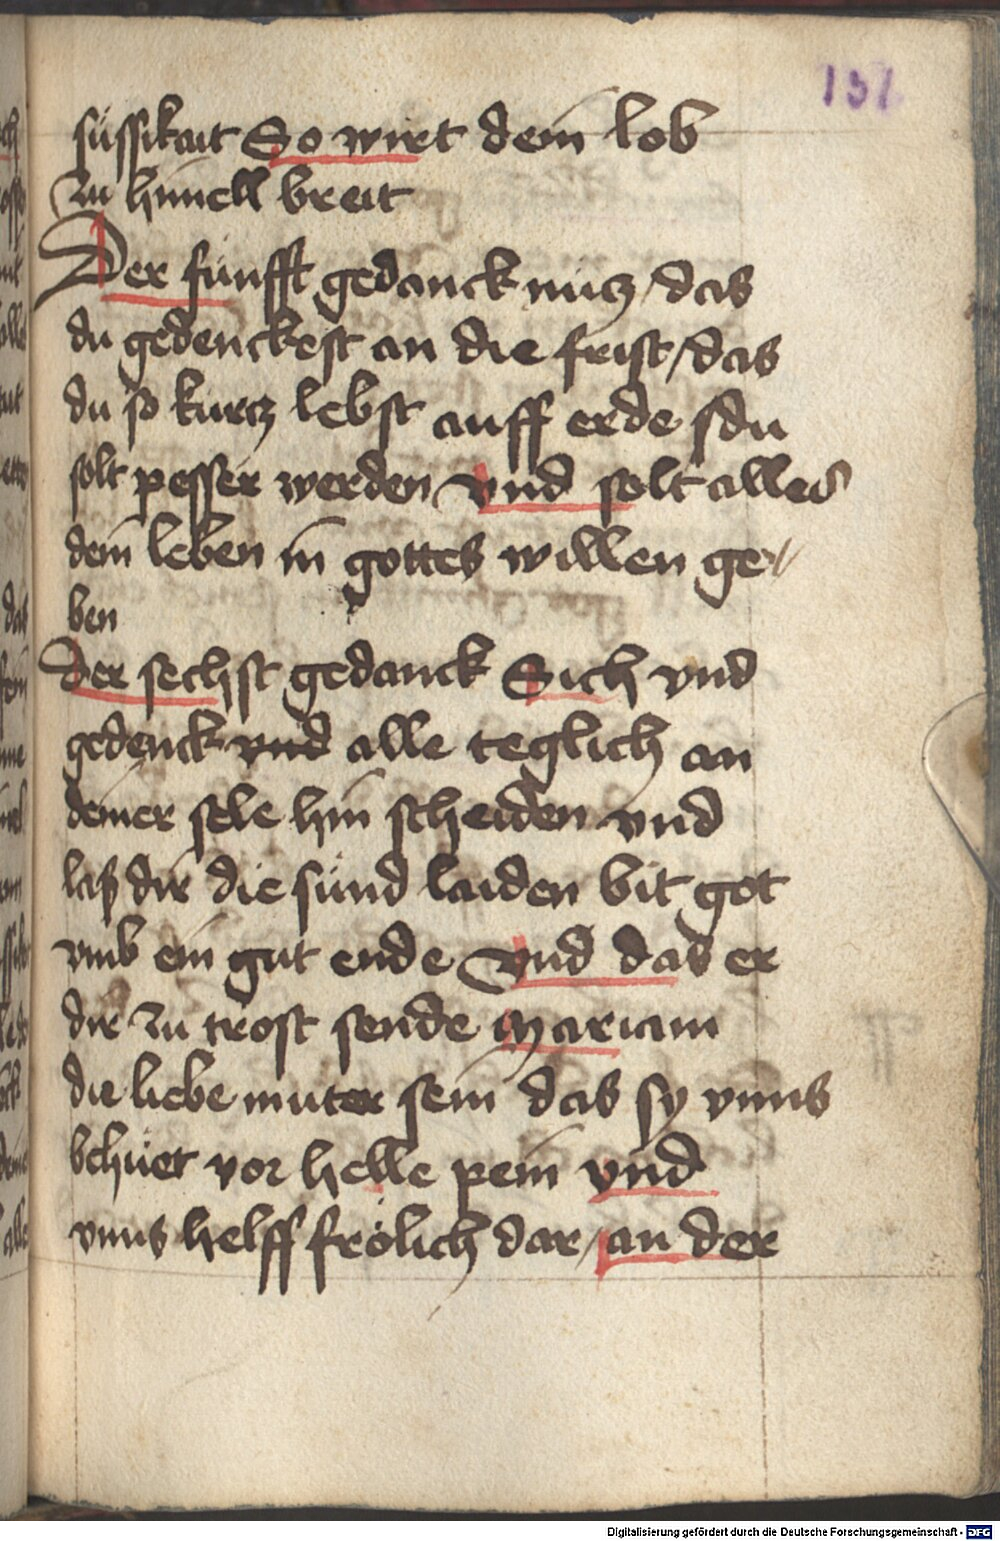 131
süssikait So wirt dein lob
zu himell breit
Der fünfft gedanck nücz / das
du gedenckest an die frist / das
du so kurcz lebst auff erde / du
solt pesser werden Vnd solt alles
dein leben in gottes willen ge //
ben
Der sechst gedanck Sich vnd
gedenck vnd alle teglich an
deiner sele hin scheiden vnd
laß dir die sünd laiden bit got
vmb ein gut ende Vnd das er
dir zu trost sende Mariam
die liebe muter sein das sy vnns
behüet vor helle pein vnd
vnns helff frölich dar / an der
Digitalisierung gefördert durch die Deutsche Forschungsgemeinschaft - DFG